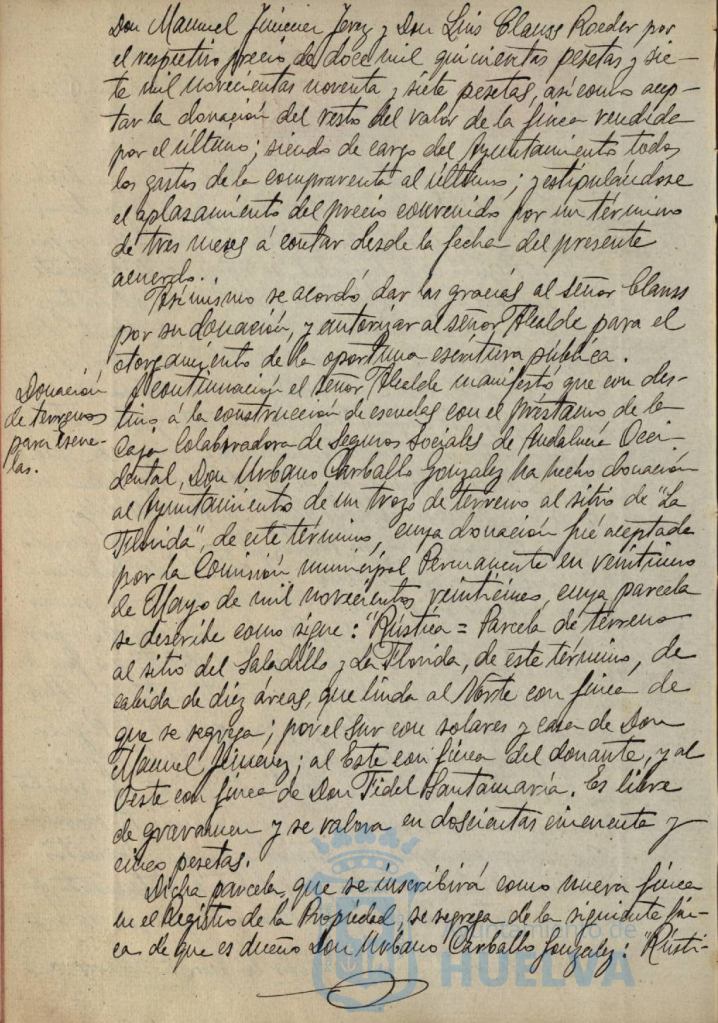 Don Manuel Jimenez Jerez y Don Luis Clauss Roeder por
el respectivo precio de doce mil quinientas pesetas y sie-
te mil novecientas noventa y siete pesetas, así como acep-
tar la donación del resto del valor de la finca vendida
por el último; siendo de cargo del Ayuntamiento todos
los gastos de la compraventa al último; y estipulándose
el aplazamiento del precio convenido por un término
de tres meses á contar desde la fecha del presente
acuerdo.
Asímismo se acordó dar las gracias al Señor Clauss
por su donación, y autorizar al Señor Alcalde para el
otorgamiento de la oportuna escritura pública.
Donación
de terrenos
para Escue-
las.
A continuación el Señor Alcalde manifestó que con des-
tino á la construccion de escuelas con el préstamo de la
Caja Colaboradora de Seguros Sociales de Andalucía Occi-
dental, Don Urbano Carballo Gonzalez ha hecho donación
al Ayuntamiento de un trozo de terreno al sitio de "La
Florida", de este término, cuya donación fué aceptada
por la Comisión municipal Permanente en veintiuno
de Mayo de mil novecientos veinticinco, cuya parcela
se describe como sigue: "Rústica = Parcela de terreno
al sitio del Saladillo y La Florida, de este término, de
cabida de diez áreas, que linda al Norte con finca de
que se segrega; por el Sur con solares y casa de Don
Manuel Jimenez; al Este con finca del donante, y al
Oeste con finca de Don Fidel Santamaría. Es libre
de gravamen y se valora en doscientas cincuenta y
cinco pesetas.
Dicha parcela, que se inscribirá como nueva finca
en el Registro de la Propiedad, se segrega de la siguiente fin-
ca de que es dueño Don Urbano Carballo Gonzalez: "Rústi-
Ayuntamiento de
HUELVA